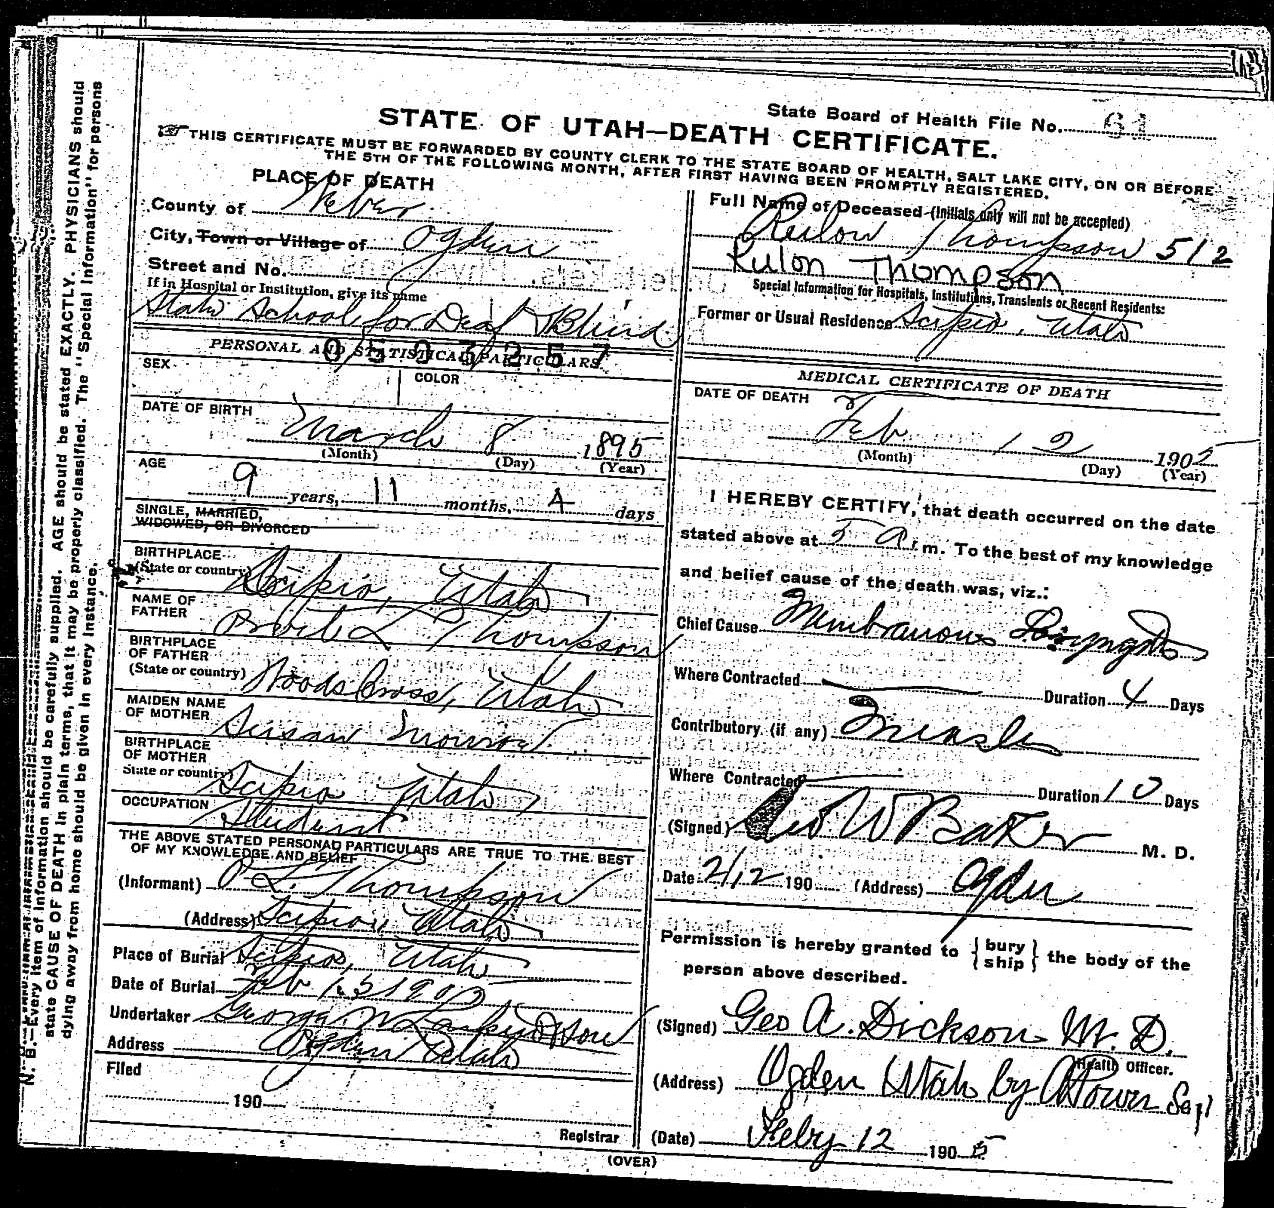 State Board of Health File No. 61
STATE OF UTAH—DEATH CERTIFICATE.
THIS CERTIFICATE MUST BE FORWARDED BY COUNTY CLERK TO THE STATE BOARD OF HEALTH, SALT LAKE CITY, ON OR BEFORE
THE 5TH OF THE FOLLOWING MONTH, AFTER FIRST HAVING BEEN PROMPTLY REGISTERED.
PLACE OF DEATH
County of Weber
City, Town or Village of Ogden
Street and No.
If in Hospital or Institution, give its name
State School for Deaf & Blind
PERSONAL AND STATISTICAL PARTICULARS
0503257
SEX
COLOR
DATE OF BIRTH
March 8 1895
(Month) (Day) (Year)
AGE
9 years, 11 months, 4 days
SINGLE, MARRIED,
WIDOWED, OR DIVORCED
BIRTHPLACE
(State or country) Scipio, Utah
NAME OF
FATHER Thompson
BIRTHPLACE
OF FATHER
(State or country) Woods Cross, Utah
MAIDEN NAME
OF MOTHER Susan Monroe
BIRTHPLACE
OF MOTHER
State or country) Scipio Utah
OCCUPATION Student
THE ABOVE STATED PERSONAL PARTICULARS ARE TRUE TO THE BEST
OF MY KNOWLEDGE AND BELIEF
(Informant) O L. Thompson
(Address) Scipio, Utah
Place of Burial Scipio, Utah
Date of Burial Feb 13 1905
Undertaker George W Larkin & Son
Address Ogden Utah
Filed
190
Registrar
Full Name of Deceased (Initials only will not be accepted)
Rulon Thompson 512
Rulon Thompson
Special Information for Hospitals, Institutions, Transients or Recent Residents:
Former or Usual Residence Scipio, Utah
MEDICAL CERTIFICATE OF DEATH
DATE OF DEATH
Feb 12 1905
(Month) (Day) (Year)
I HEREBY CERTIFY, that death occurred on the date
stated above at 5 a.m. To the best of my knowledge
and belief cause of the death was, viz.:
Chief Cause Membranous Laryngitis
Where Contracted Duration 4 Days
Contributory (if any) Measles
Where Contracted Duration 10 Days
(Signed) Geo W Baker M. D.
Date 2/12 190 (Address) Ogden
Permission is hereby granted to { bury ship } the body of the
person above described.
(Signed) Geo A. Dickson M. D.
Health Officer.
(Address) Ogden Utah by
(Date) Feby 12 1905
(OVER)
N. B.—Every item of information should be carefully supplied. AGE should be stated EXACTLY. PHYSICIANS should
state CAUSE OF DEATH in plain terms, that it may be properly classified. The "Special Information" for persons
dying away from home should be given in every instance.